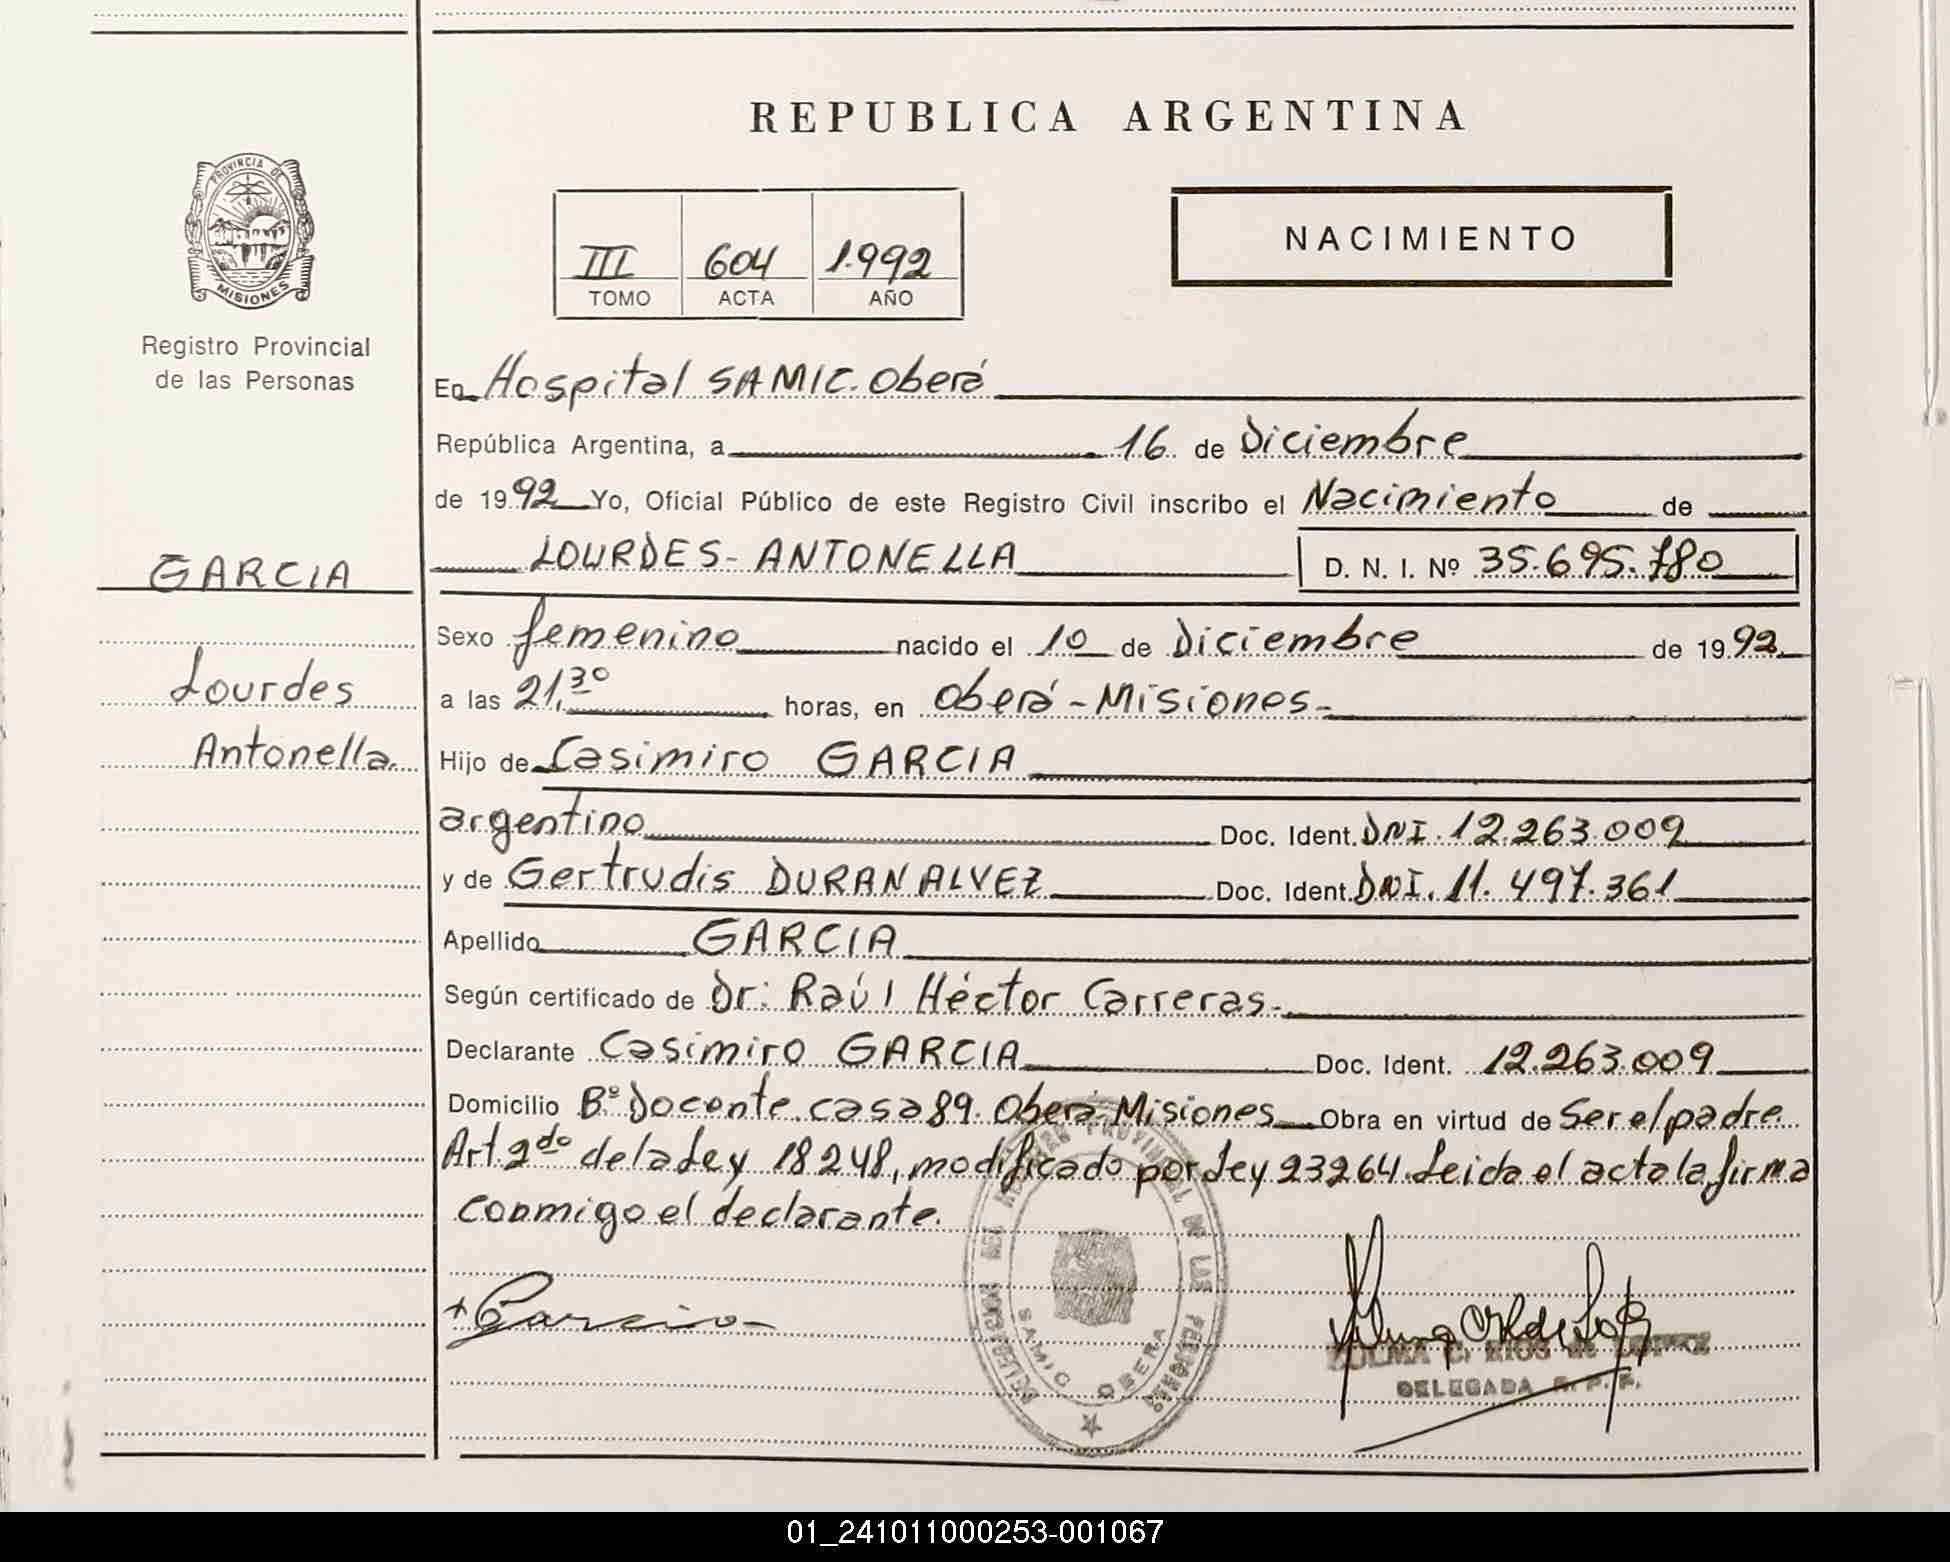 REPUBLICA ARGENTINA
PROVINCIA DE
MISIONES
Registro Provincial
de las Personas
III 604 1.992
TOMO ACTA AÑO
NACIMIENTO
En Hospital SAMIC. Oberá
República Argentina, a 16 de Diciembre
de 1992 Yo, Oficial Público de este Registro Civil inscribo el Nacimiento de
GARCIA
Lourdes
Antonella.
LOURDES - ANTONELLA D. N. I. Nº 35.695.780
Sexo femenino nacido el 10 de Diciembre de 1992
a las 21,30 horas, en Oberá - Misiones -
Hijo de Casimiro GARCIA
argentino Doc. Ident. DNI. 12.263.009
y de Gertrudis DURAN ALVEZ Doc. Ident. DNI. 11.497.361
Apellido GARCIA
Según certificado de Dr: Raúl Héctor Carreras.
Declarante Casimiro GARCIA Doc. Ident. 12.263.009
Domicilio Bº Docente. casa 89. Oberá. Misiones Obra en virtud de Ser el padre
Art. 2do de la Ley 18248, modificado por Ley 23264. Leida el acta la firma
conmigo el declarante.
PROVINCIAL DE LAS PERSONAS
SAMIC OBERA
Garcia
DELEGADA R. P. P.
01_241011000253-001067